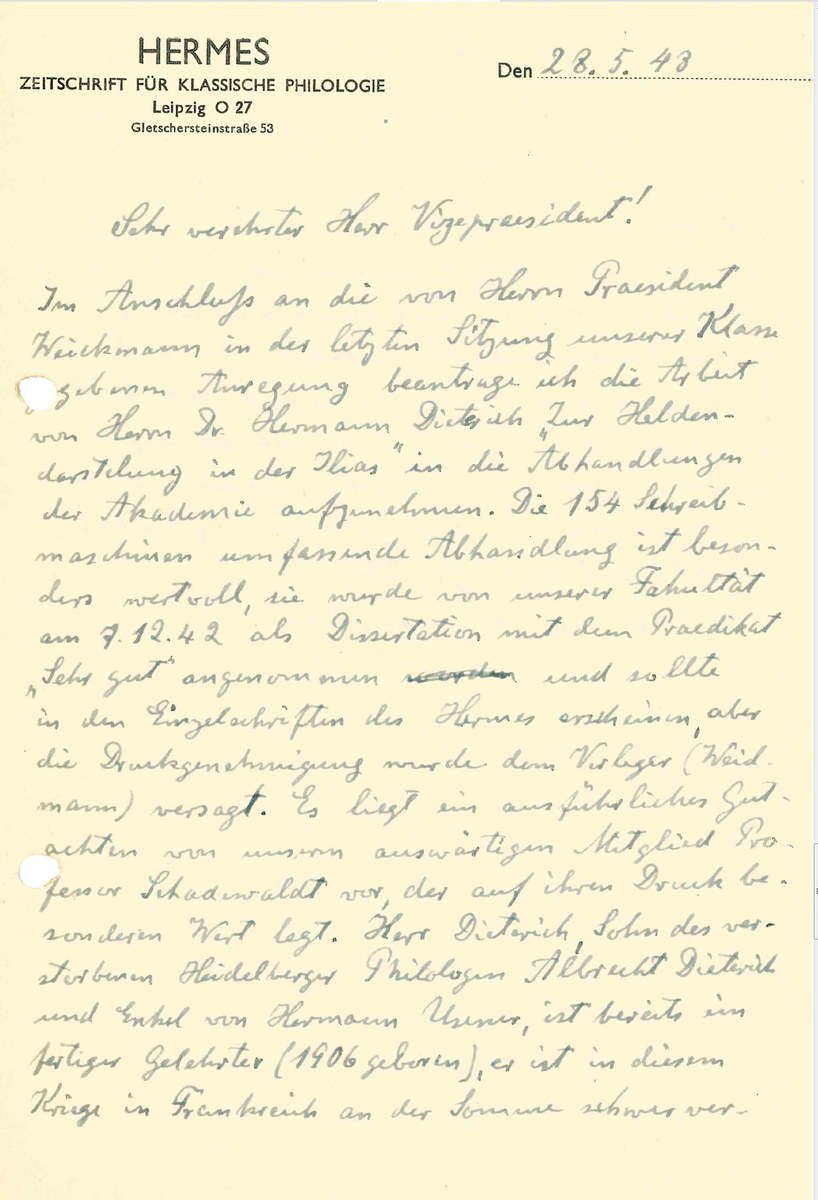 HERMES
ZEITSCHRIFT FÜR KLASSISCHE PHILOLOGIE
Leipzig O 27
Gletschersteinstraße 53
Den 28. 5. 43
Sehr verehrter Herr Vizepraesident!
Im Anschluß an die von Herrn Praesident
Weickmann in der letzten Sitzung unserer Klasse
gegebenen Anregung beantrage ich die Arbeit
von Herrn Dr. Hermann Dieterich „Zur Helden-
darstellung in der Ilias" in die Abhandlungen
der Akademie aufzunehmen. Die 154 Schreib-
maschinen umfassende Abhandlung ist beson-
ders wertvoll, sie wurde von unserer Fakultät
am 7.12.42 als Dissertation mit dem Praedikat
„Sehr gut" angenommen worden und sollte
in den Einzelschriften des Hermes erscheinen, aber
die Druckgenehmigung wurde dem Verleger (Weid-
mann) versagt. Es liegt ein ausführliches Gut-
achten von unserm auswärtigen Mitglied Pro-
fessor Schadewaldt vor, der auf ihren Druck be-
sonderen Wert legt. Herr Dieterich, Sohn des ver-
storbenen Heidelberger Philologen Albrecht Dieterich
und Enkel von Hermann Usener, ist bereits ein
fertiger Gelehrter (1906 geboren), er ist in diesem
Kriege in Frankreich an der Somme schwer ver-